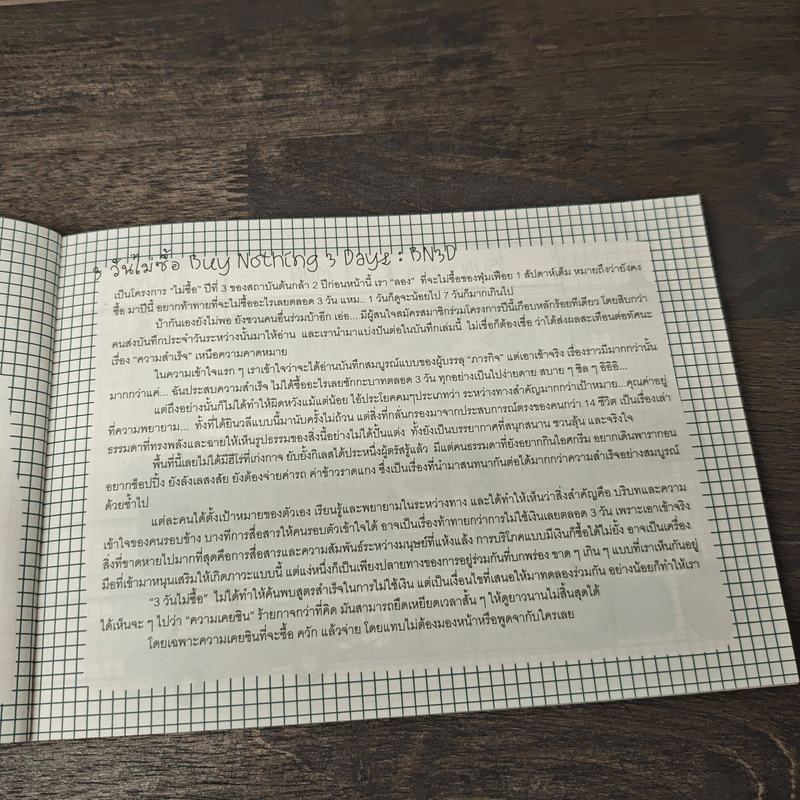 3 วันไม่ซื้อ Buy Nothing 3 Days : BN3D
เป็นโครงการ “ไม่ซื้อ” ปีที่ 3 ของสถาบันต้นกล้า 2 ปีก่อนหน้านี้ เรา “ลอง” ที่จะไม่ซื้อของฟุ่มเฟือย 1 สัปดาห์เต็ม หมายถึงว่ายังคง
ซื้อ มาปีนี้ อยากท้าทายที่จะไม่ซื้ออะไรเลยตลอด 3 วัน แหม... 1 วันก็ดูจะน้อยไป 7 วันก็มากเกินไป
บ้ากันเองยังไม่พอ ยังชวนคนอื่นร่วมบ้าอีก เอ่อ... มีผู้สนใจสมัครสมาชิกร่วมโครงการปีนี้เกือบหลักร้อยทีเดียว โดยสิบกว่า
คนส่งบันทึกประจำวันระหว่างนั้นมาให้อ่าน และเรานำมาแบ่งปันต่อในบันทึกเล่มนี้ ไม่เชื่อก็ต้องเชื่อ ว่าได้ส่งผลสะเทือนต่อทัศนะ
เรื่อง “ความสำเร็จ” เหนือความคาดหมาย
ในความเข้าใจแรก ๆ เราเข้าใจว่าจะได้อ่านบันทึกสมบูรณ์แบบของผู้บรรลุ “ภารกิจ” แต่เอาเข้าจริง เรื่องราวมีมากกว่านั้น
มากกว่าแค่... ฉันประสบความสำเร็จ ไม่ได้ซื้ออะไรเลยซักกะบาทตลอด 3 วัน ทุกอย่างเป็นไปง่ายดาย สบาย ๆ ชิล ๆ อิอิอิ...
แต่ถึงอย่างนั้นก็ไม่ได้ทำให้ผิดหวังแม้แต่น้อย ไอ้ประโยคคมๆประเภทว่า ระหว่างทางสำคัญมากกว่าเป้าหมาย...คุณค่าอยู่
ที่ความพยายาม... ทั้งที่ได้ยินวลีแบบนี้มานับครั้งไม่ถ้วน แต่สิ่งที่กลั่นกรองมาจากประสบการณ์ตรงของคนกว่า 14 ชีวิต เป็นเรื่องเล่า
ธรรมดาที่ทรงพลังและฉายให้เห็นรูปธรรมของสิ่งนี้อย่างไม่ได้ปั้นแต่ง ทั้งยังเป็นบรรยากาศที่สนุกสนาน ชวนลุ้น และจริงใจ
พื้นที่นี้เลยไม่ได้มีฮีโร่ที่เก่งกาจ ยับยั้งกิเลสได้ประหนึ่งผู้ตรัสรู้แล้ว มีแต่คนธรรมดาที่ยังอยากกินไอศกรีม อยากเดินพารากอน
อยากช็อปปิ้ง ยังลังเลสงสัย ยังต้องจ่ายค่ารถ ค่าข้าวราดแกง ซึ่งเป็นเรื่องที่นำมาสนทนากันต่อได้มากกว่าความสำเร็จอย่างสมบูรณ์
ด้วยซ้ำไป
แต่ละคนได้ตั้งเป้าหมายของตัวเอง เรียนรู้และพยายามในระหว่างทาง และได้ทำให้เห็นว่าสิ่งสำคัญคือ บริบทและความ
เข้าใจของคนรอบข้าง บางทีการสื่อสารให้คนรอบตัวเข้าใจได้ อาจเป็นเรื่องท้าทายกว่าการไม่ใช้เงินเลยตลอด 3 วัน เพราะเอาเข้าจริง
สิ่งที่ขาดหายไปมากที่สุดคือการสื่อสารและความสัมพันธ์ระหว่างมนุษย์ที่แห้งแล้ง การบริโภคแบบมีเงินก็ซื้อได้ไม่ยั้ง อาจเป็นเครื่อง
มือที่เข้ามาหนุนเสริมให้เกิดภาวะแบบนี้ แต่แง่หนึ่งก็เป็นเพียงปลายทางของการอยู่ร่วมกันที่บกพร่อง ขาด ๆ เกิน ๆ แบบที่เราเห็นกันอยู่
“3 วันไม่ซื้อ” ไม่ได้ทำให้ค้นพบสูตรสำเร็จในการไม่ใช้เงิน แต่เป็นเงื่อนไขที่เสนอให้มาทดลองร่วมกัน อย่างน้อยก็ทำให้เรา
ได้เห็นจะ ๆ ไปว่า “ความเคยชิน” ร้ายกาจกว่าที่คิด มันสามารถยืดเหยียดเวลาสั้น ๆ ให้ดูยาวนานไม่สิ้นสุดได้
โดยเฉพาะความเคยชินที่จะซื้อ ควัก แล้วจ่าย โดยแทบไม่ต้องมองหน้าหรือพูดจากับใครเลย